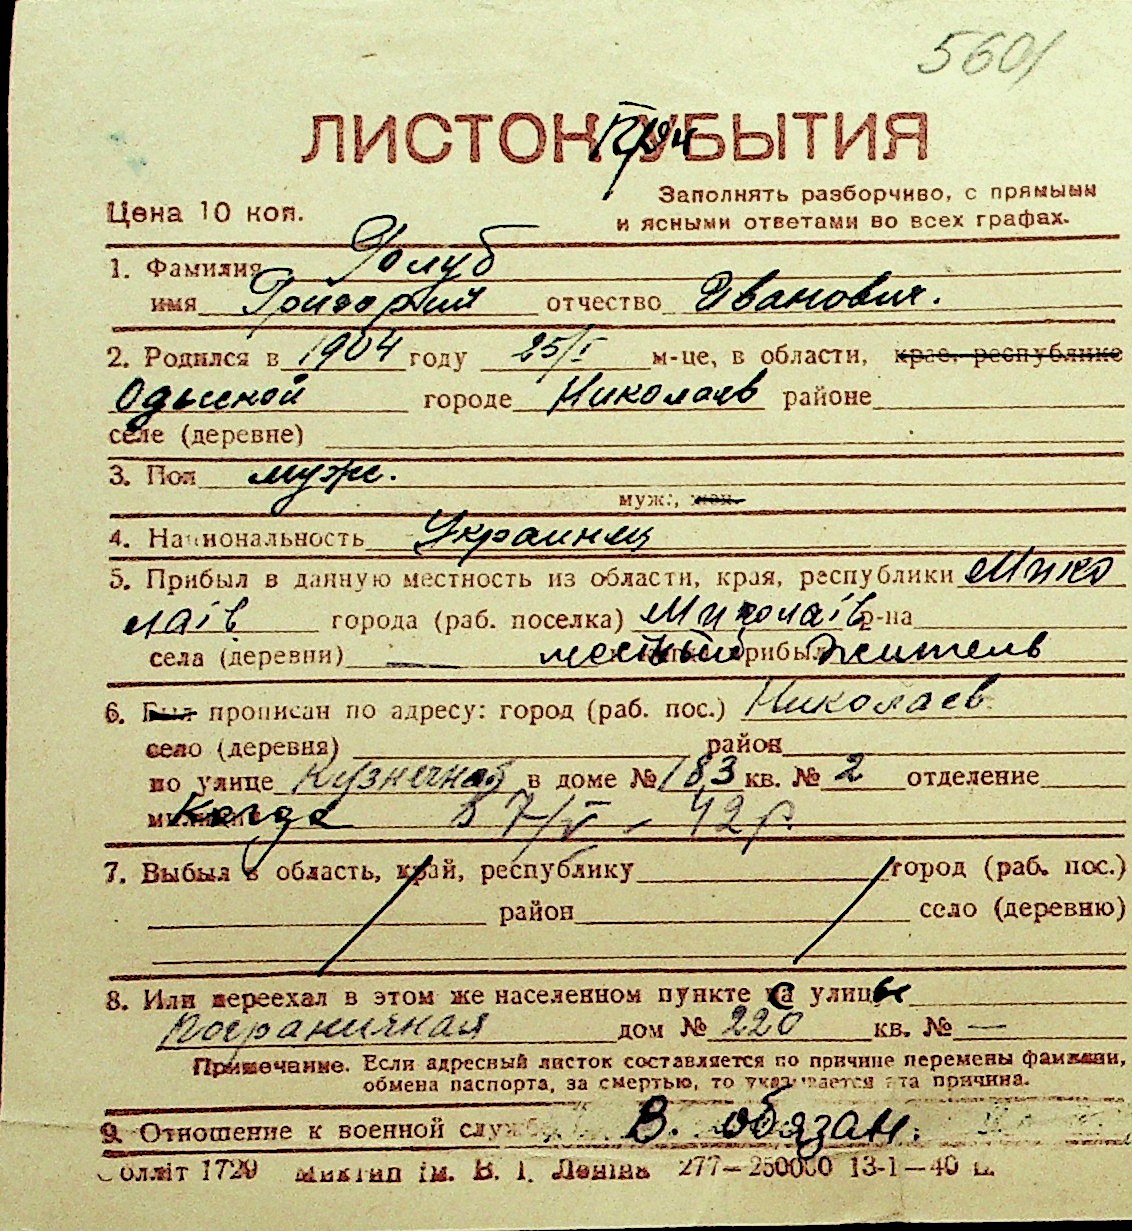 5601
ЛИСТОК УБЫТИЯ
Цена 10 коп.
Заполнять разборчиво, с прямыми
и ясными ответами во всех графах.
1. Фамилия Голуб
имя Григорий отчество Иванович.
2. Родился в 1904 году 25/I м-це, в области, крае, республике
Одесской городе Николаев районе
селе (деревне)
3. Пол муж.
муж., жен.
4. Национальность Украинец
5. Прибыл в данную местность из области, края, республики Мико
лаїв города (раб. поселка) Миколаїв р-на
села (деревни) — местный прибыл житель
6. Был прописан по адресу: город (раб. пос.) Николаев
село (деревня) район
по улице Кузнечная в доме № 183 кв. № 2 отделение
милиции Когда 7/V - 42 р.
7. Выбыл в область, край, республику город (раб. пос.)
район село (деревню)
8. Или переехал в этом же населенном пункте с улицы
Пограничная дом № 220 кв. № —
Примечание. Если адресный листок составляется по причине перемены фамилии,
обмена паспорта, за смертью, то указывается эта причина.
9. Отношение к военной службе В. обязан.
Облліт 1720 ім. В. І. Леніна 277—250000 13-1—40 р.